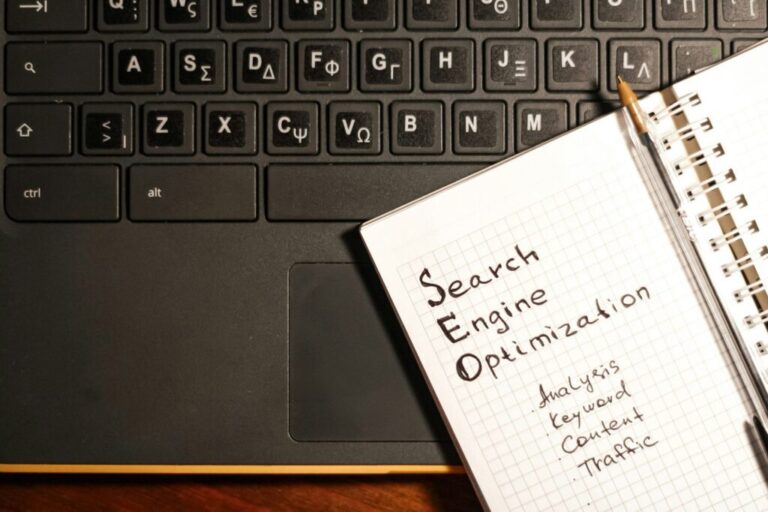 Q ; W ς E € R P Θ Π
A S Σ D Δ F Φ G Γ H J Ξ K L Λ
< > | Z X C Ψ V Ω B N M
ctrl alt
Search
Engine
Optimization
. Analysis
. Keyword
. Content
. Traffic
.